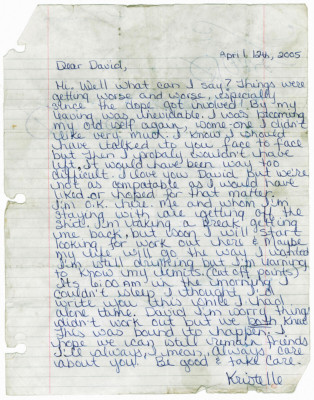 April 12th, 2005
Dear David,
Hi. Well what can I say? Things were
getting worse and worse, especially
since the dope got involved. By my
leaving was inevidable. I was becoming
my old self again, some-one I didn't
like very much. I know I should
have talked to you face to face
but then I probably wouldn't have
left. It would have been way too
difficult. I love you David but we're
not as compatable as I would have
liked or hoped for that matter.
I'm O.K. here. Me and whom I'm
staying with are getting off the
shit. I'm taking a break getting
me back but soon I will start
looking for work out here & Maybe
my life will go the way I wanted
I'm still drinking but I'm learning
to know my limits. (cut off points)
Its 6:00 AM in the morning I
couldn't sleep I thought I'd
write you this while I had
alone time. David I'm sorry things
didn't work out but we both knew
this was bound to happen. I
hope we can still remain friends
I'll always, I mean, Always, care
about you. Be good & take care.
Kristelle